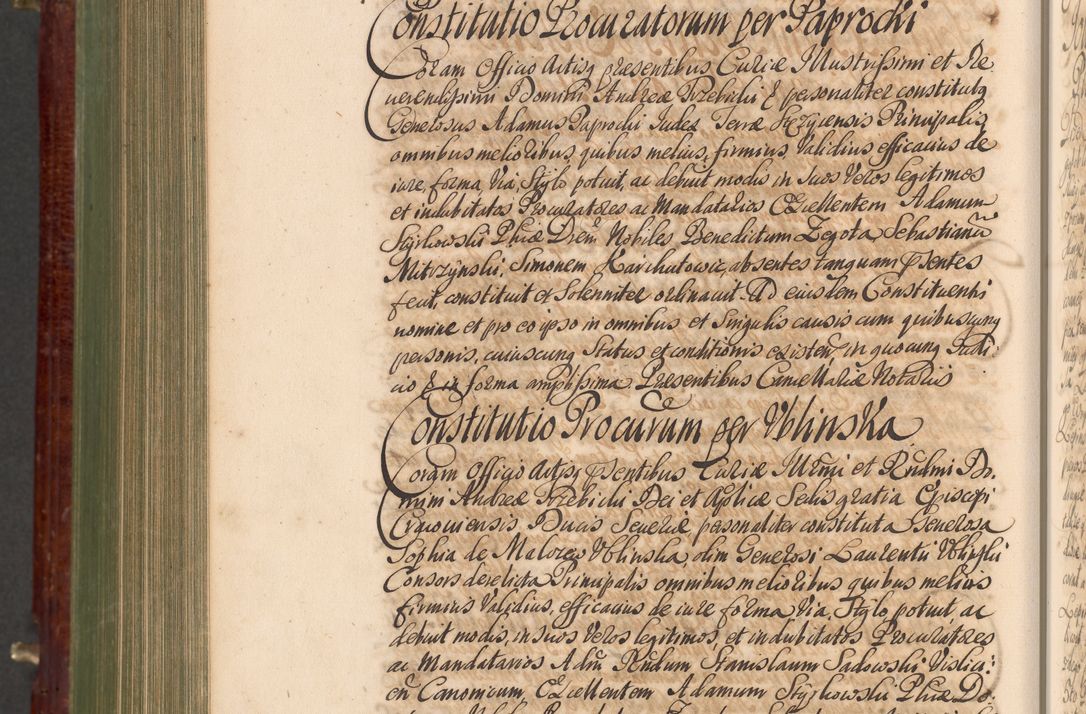 Constitutio Procuratorum per Paprocki
Coram Officio Actisq praesentibus Curiae Illustrissimi et Re
uerendissimi Domini Andreae Trzebicki E personaliter constitutq
Generosus Adamus Paprocki Iudex Terrae Principalis
omnibus melioribus, quibus melius, firmius, Validius efficacius de
iure, forma, Via, Stylo potuit, ac debuit modis in Suos Veros legitimos
et indubitatos Procuratores ac Mandatarios Excellentem Adamum
Styrkowski Phiae Drem Nobiles Benedictum Zegota Sebastianu
Mitrzynski, Simonem Karchutowic, absentes tanquam psentes
fecit, constituit et Solenniter ordinauit. Ad eiusdem Constituentis
nomine et pro eo ipso in omnibus et Singulis causis cum quibuscunq
personis, cuiuscunq Status et conditionis existen, in quocunq Iudi
cio in forma amplissima Praesentibus Cancellariae Notariis
Constitutio Procurum per Vblinska
Coram Officio Actisq psentibus Curiae Illrmi et Rndmi Do
mini Andreae Trzebicki Dei et Aplicae Sedis gratia Episcopi
Cracouiensis Ducis Seueriae personaliter constituta Generosa
Sophia de Malores Vblinska, olim Generosi Laurentii Vblinski
Consors derelicta Principalis omnibus melioribus quibus melius
firmius Validius, efficacius de iure forma Via, Stylo potuit ac
debuit modis, in suos Veros legitimos, et indubitatos Procuratores
ac Mandatarios Adm Rndum Stanislaum Sadowski Vislici:
en Canonicum, Excellentem Adamum Styrkowski Phiae Do: